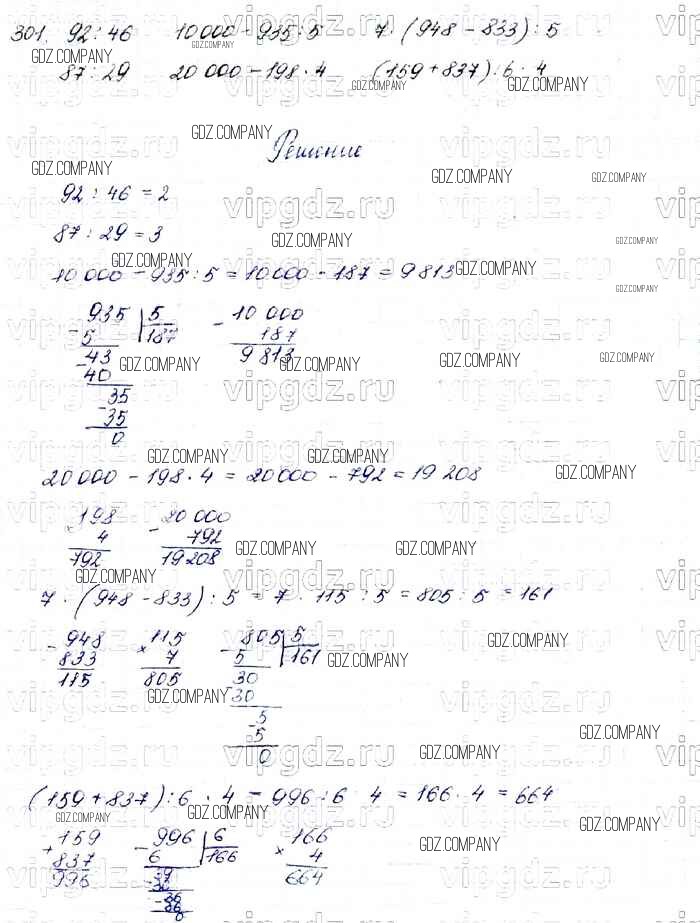 301. 92 : 46    10 000 - 935 : 5    7 · (948 - 833) : 5
87 : 29    20 000 - 198 · 4    (159 + 837) : 6 · 4
Решение
92 : 46 = 2
87 : 29 = 3
10 000 - 935 : 5 = 10 000 - 187 = 9 813
- 935 | 5    - 10 000
5    187    187
- 43    9 813
40
- 35
35
0
20 000 - 198 · 4 = 20 000 - 792 = 19 208
× 198    - 20 000
4    792
792    19 208
7 · (948 - 833) : 5 = 7 · 115 : 5 = 805 : 5 = 161
- 948    × 115    - 805 | 5
833    7    5    161
115    805    30
- 30
- 5
5
0
(159 + 837) : 6 · 4 = 996 : 6 · 4 = 166 · 4 = 664
+ 159    - 996 | 6    × 166
837    6    166    4
996    39    664
- 36
0
vipgdz.ru
GDZ.COMPANY